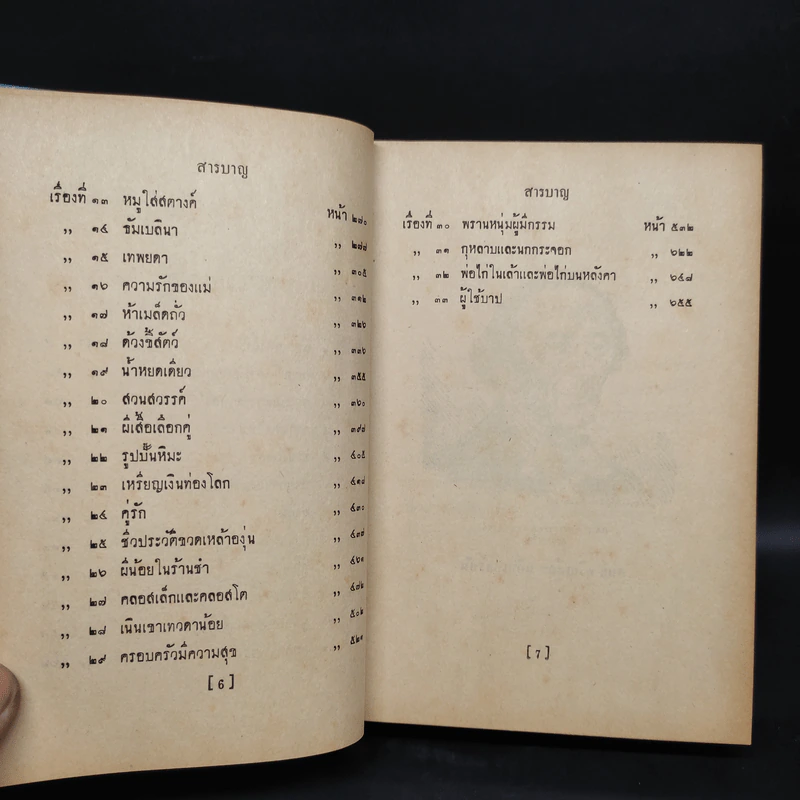 สารบาญ
เรื่องที่ ๑๓ หมูใส่สตางค์ หน้า ๒๗๐
,, ๑๔ ธัมเบลินา ,, ๒๗๗
,, ๑๕ เทพยดา ,, ๓๐๕
,, ๑๖ ความรักของแม่ ,, ๓๑๒
,, ๑๗ ห้าเมล็ดถั่ว ,, ๓๒๖
,, ๑๘ ด้วงขี้สัตว์ ,, ๓๓๖
,, ๑๙ น้ำหยดเดียว ,, ๓๕๕
,, ๒๐ สวนสวรรค์ ,, ๓๖๐
,, ๒๑ ผีเสื้อเลือกคู่ ,, ๓๙๗
,, ๒๒ รูปปั้นหิมะ ,, ๔๐๕
,, ๒๓ เหรียญเงินท่องโลก ,, ๔๑๘
,, ๒๔ คู่รัก ,, ๔๓๐
,, ๒๕ ชีวประวัติขวดเหล้าองุ่น ,, ๔๓๗
,, ๒๖ ผีน้อยในร้านชำ ,, ๔๖๑
,, ๒๗ คลอสเล็กและคลอสโต ,, ๔๗๒
,, ๒๘ เนินเขาเทวดาน้อย ,, ๕๐๒
,, ๒๙ ครอบครัวมีความสุข ,, ๕๒๑
[ 6 ]
สารบาญ
เรื่องที่ ๓๐ พรานหนุ่มผู้มีกรรม หน้า ๕๓๒
,, ๓๑ กุหลาบและนกกระจอก ,, ๖๒๒
,, ๓๒ พ่อไก่ในเล้าและพ่อไก่บนหลังคา ,, ๖๔๘
,, ๓๓ ผู้ใช้บาป ,, ๖๕๕
[ 7 ]